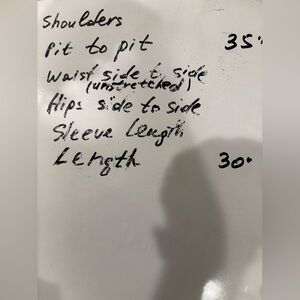 Shoulders
Pit to pit 35"
Waist side t side
(unstretched)
Hips side to side
Sleeve Length
Length 30"